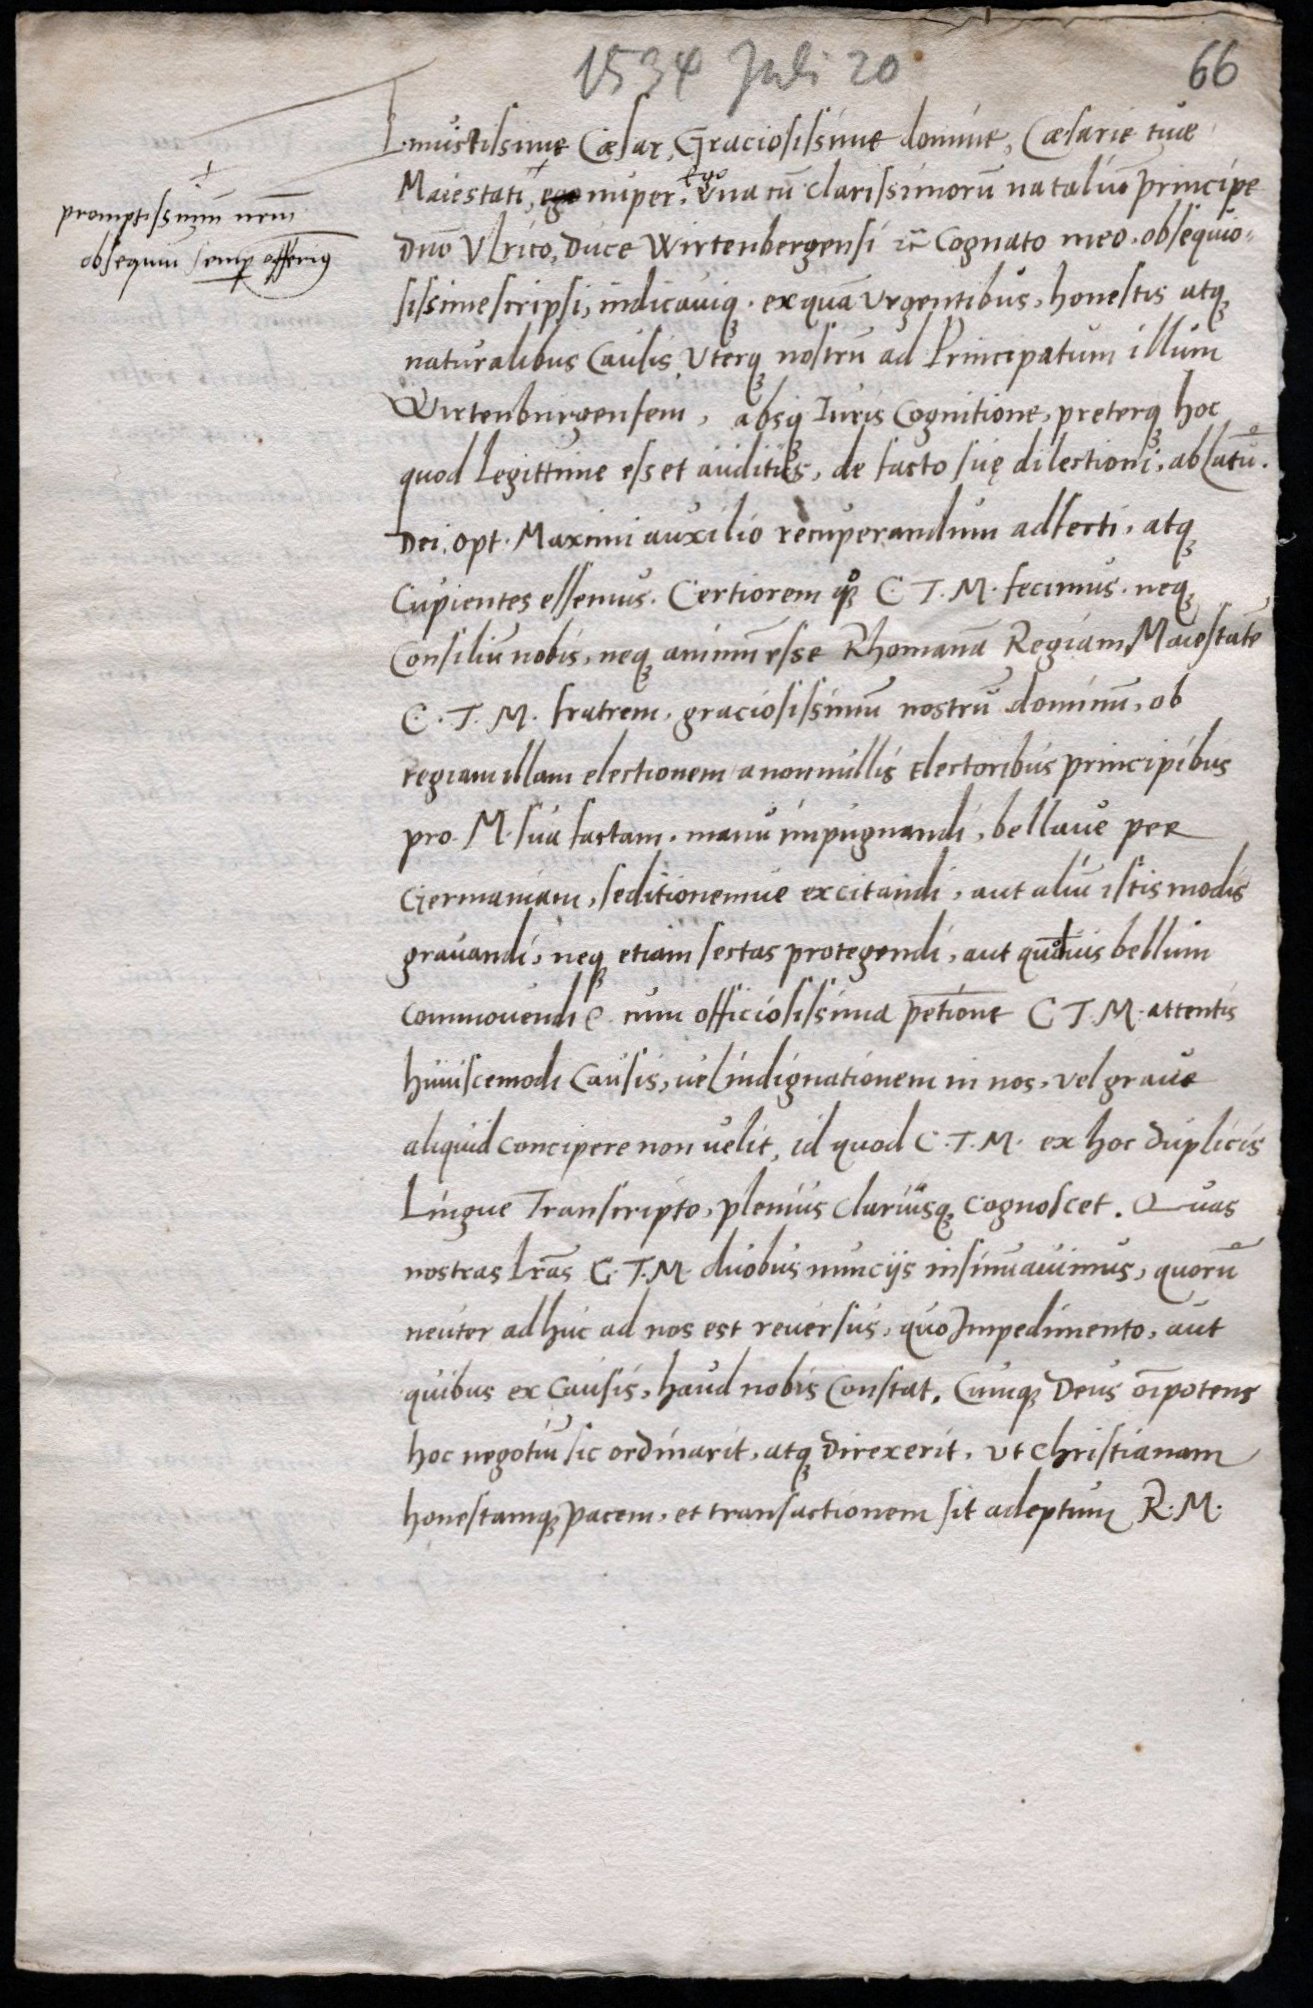 1534 Juli 20
66
Inuictissime Cæsar, Graciosissime domine, Cæsarie tuæ
Maiestati, ego nuper. ego Vna cū clarissimorū nataliū principe
promptissimū nrm̄
obsequiū semp offeriꝰ
Dnō Vlrico, Duce Wirtenbergensi ꝛc̄ Cognato meo. obsequio-
sissime scripsi, indicauiq. ex quā vrgentibus, honestis atq
naturalibus Causis, vterq nostrū ad Principatum illum
Wirtenburgensem, absq Iuris Cognitione, preterq hoc
quod Legittime esset auditus, de facto suę dilectioni, ablatū.
Dei, Opt. Maximi auxilio recuperandum adfecti, atq
Cupientes essemus. Certiorem qꝫ C. T. M. fecimus. neq
Consiliū nobis, neq animū esse Rhomanā Regiam Maiestatē
C. T. M. fratrem, graciosissimū nostrū dominū, ob
regiam illam electionem a nonnullis electoribus principibus
pro M. sua factam. manu impugnandi, bellaue per
Germaniam, seditionemue excitandi, aut aliū istis modis
grauandi, neq etiam sectas protegendi, aut quoduis bellum
commouendi &. cum officiosissima petitione C. T. M. attentis
huiuscemodi Causis, uel indignationem in nos, vel graue
aliquid concipere non uelit, id quod C. T. M. ex hoc duplicis
Lingue Transcripto, plenius clariusq cognoscet. Quas
nostras lrās C. T. M. duobus nuncijs insinuauimus, quorū
neuter adhuc ad nos est reuersus, quo Impedimento, aut
quibus ex Causis, haud nobis Constat. Cumq Deus oīpotens
hoc negotiū sic ordinarit, atq direxerit, vt christianam
honestamq pacem, et transactionem sit adeptum R. M.